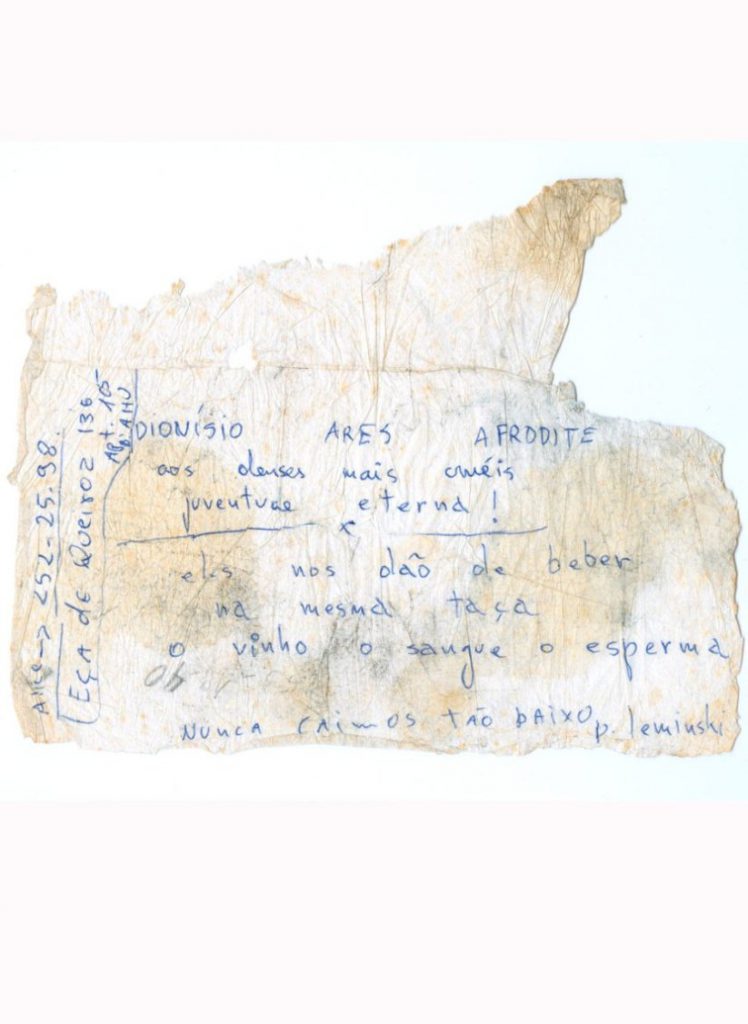 DIONÍSIO ARES AFRODITE
aos deuses mais cruéis
juventude eterna!
x
eles nos dão de beber
na mesma taça
o vinho o sangue o esperma
NUNCA CAímOS TÃO bAIXO p. leminski
Alice -> 252-25.98.
EÇA de QUEIROZ 136
APt. 105
AHU